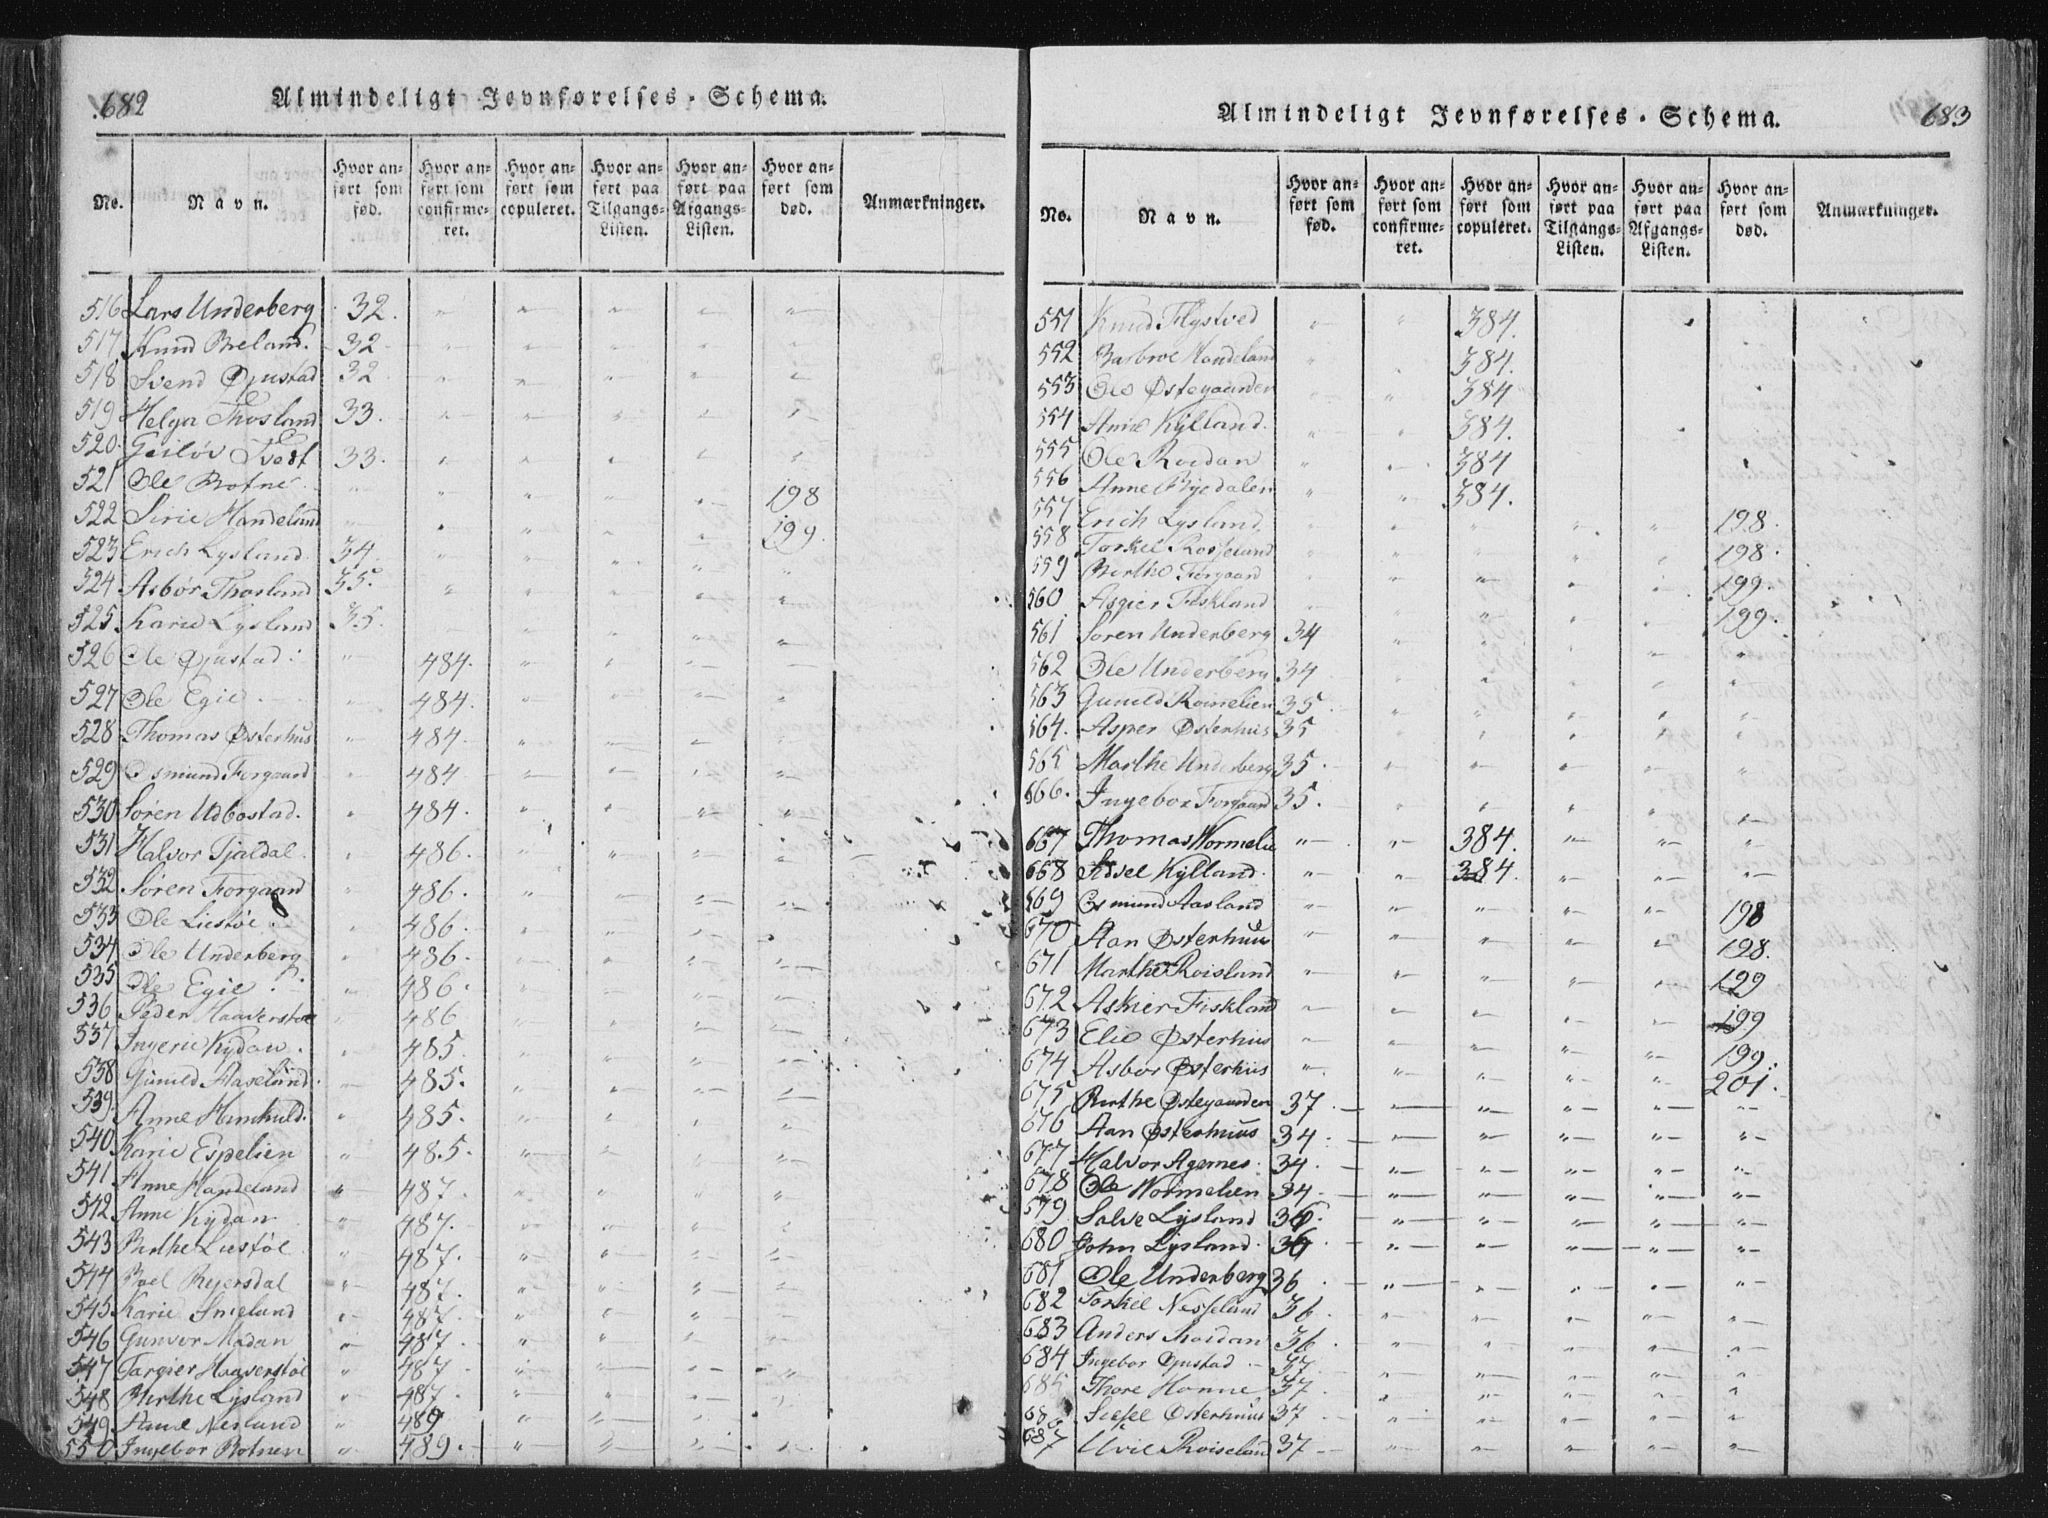 682
Almindeligt Jevnførelses-Schema.
No. Navn. Hvor anført som fød. Hvor anført som confirmeret. Hvor anført som copuleret. Hvor anført paa Tilgangs-Listen. Hvor anført paa Afgangs-Listen. Hvor anført som død. Anmærkninger.
516 Lars Underberg 32.
517 Knud Breland. 32
518 Svend Qjustad 32
519 Helga Thosland 33.
520. Geiløv Tvedt 33.
521 Ole Botne 198
522 Sirie Handeland 199.
523 Erich Lysland 34
524 Asbør Thosland 35.
525 Karie Lysland 35.
526 Ole Qjustad 484.
527 Ole Egie 484.
528 Thomas Østerhus 484.
529 Osmund Forgaard 484.
530 Søren Udbostad. 484.
531 Halvor Tjaldal 486.
532 Søren Forgaard 486.
533 Ole Liestøe 486.
534 Ole Underberg 486.
535 Ole Egie 486.
536 Peder Haaverstøe 486
537 Ingerie Kydan. 485.
538 Gunild Aaseland. 485.
539. Anne Hamkuld. 485.
540 Karie Espelien 485.
541 Anne Handeland 487.
542 Anne Kydan 487.
543 Birthe Liestøl 487.
544 Boel Ryersdal 487.
545 Karie Smeland 487.
546 Gunvor Mødan 487.
547 Targier Haaverstøl 487.
548 Birthe Lysland 487.
549 Aase Nesland 489
550 Ingebor Botnen 489.
683
Almindeligt Jevnførelses-Schema.
No. Navn. Hvor anført som fød. Hvor anført som confirmeret. Hvor anført som copuleret. Hvor anført paa Tilgangs-Listen. Hvor anført paa Afgangs-Listen. Hvor anført som død. Anmærkninger.
551 Knud Flystved 384.
552 Barbroe Handeland 384.
553 Ole Østegaarden 384
554 Anne Kylland. 384.
555 Ole Roidan 384
556 Anne Ryedalen 384.
557 Erich Lysland. 198.
558 Torkel Rosseland 198.
559 Birthe Forgaard 199.
560 Asgier Fiskland 199.
561 Søren Underberg 34
562 Ole Underberg 34
563 Gunild Romelien 35
564. Asper Østerhus 35
565 Marthe Underberg 35.
566. Ingebor Forgaard 35.
667 Thomas Wormelie 384.
668 Sidsel Kylland. 384.
669 Osmund Aasland 198
670 Aan Østerhuus 198.
671 Marthe Roisland 199
672 Askier Fiskland 199
673 Elie Østerhus 199.
674 Asbør Østerhus 201.
675 Birthe Østegaarden 37.
676 Aan Østerhuus 34.
677 Halvor Agernes. 34.
678 Ole Wormelien 34.
679 Salve Lysland 36.
680 John Lysland. 36
681 Ole Underberg 36
682 Torkel Nesseland 36
683 Anders Moidan 36
684 Ingebor Qjustad 37
685 Thore Honne 37
686 Sissel Østerhuus 37
687 Urie Roiseland 37